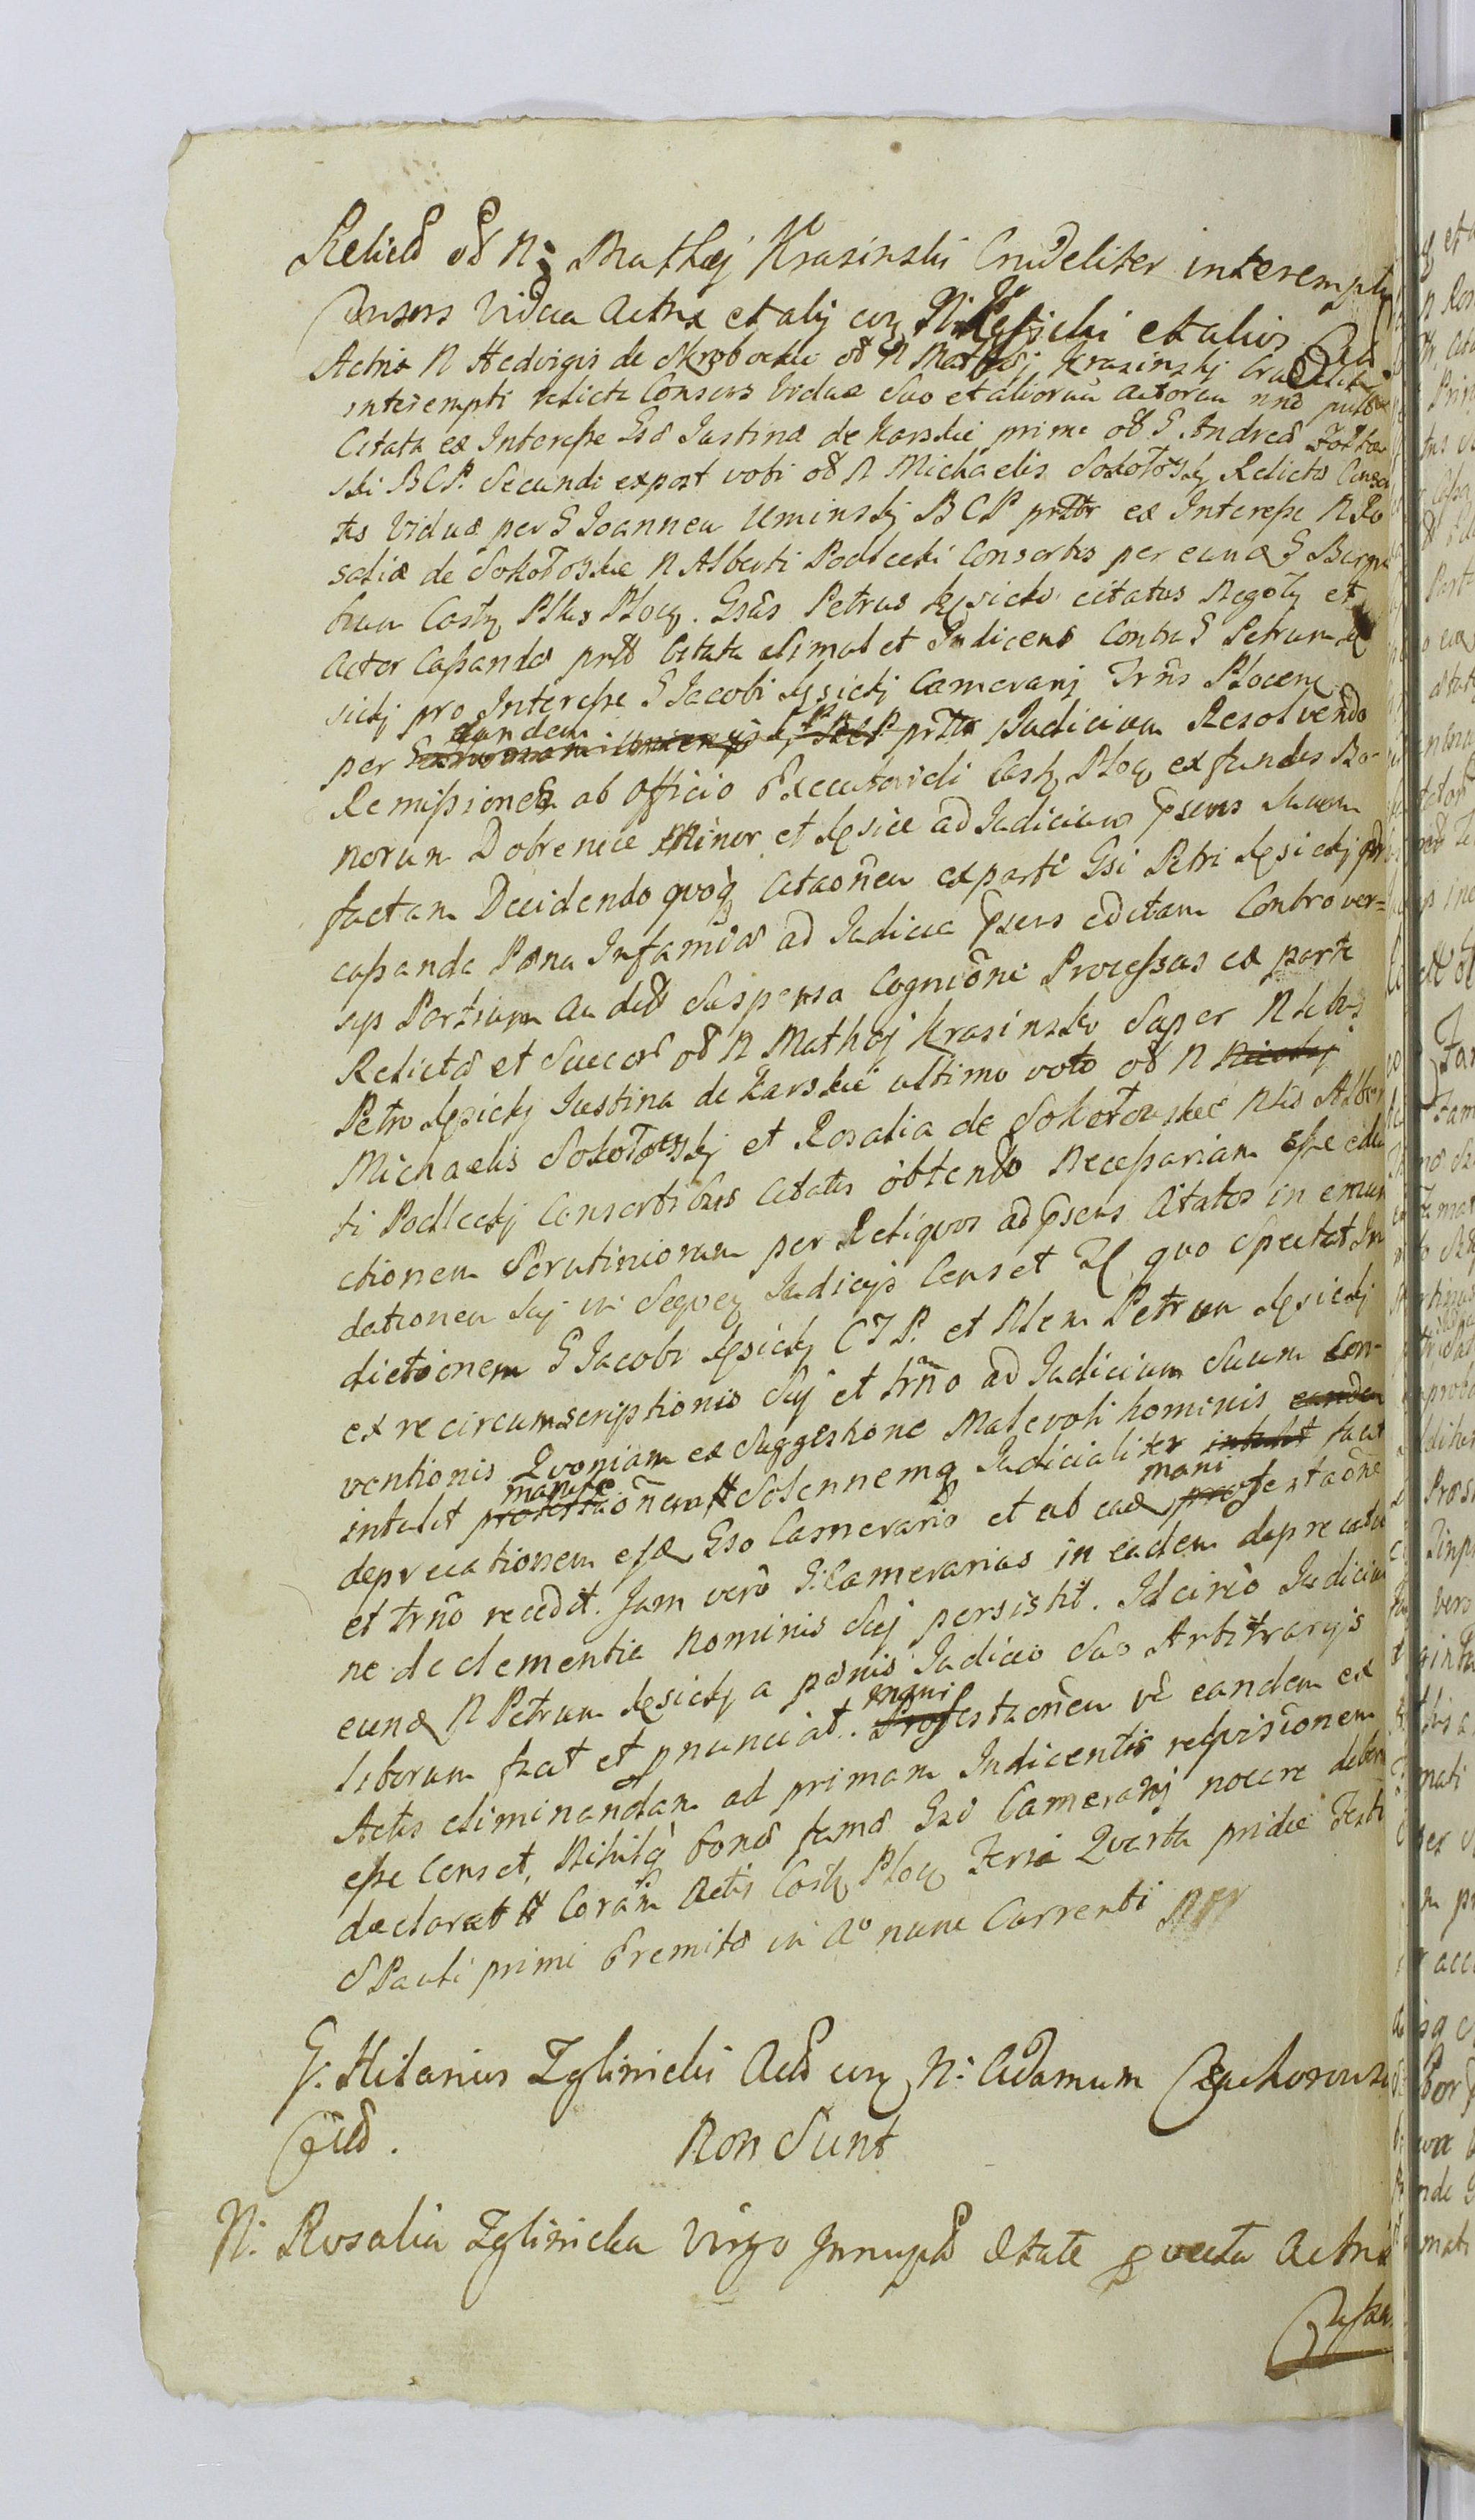 Relicta ol N: Mathæj Krasinski Crudeliter interempti
Consors Vidua Actrix et alij cum N: Kęsicki et alios
Actria N Hedvigis de Skrobockie ol N Mathæj Krasinskj Crudeliter
interempti relicta Consors Vidua Suo et aliorum actorum nne
Citata ex Interesse Gsa Justina de Karskie primo ol G Andreæ
ski BCP. Secundi expost voti ol N Michaelis Sokołoskj Relicta Conso
tis Vidua per G Joannem Uminskj BCP ex Interesse N Ro
salia de Sokołoskie N Alberti Podleckj Consortis per eund G Burgra
bium Castr Plłis Płoc. Gsus Petrus Kęsicki citatus Negoty et
actor Cassandæ Citata Simul et Indicens Contra G Petrum Kę
sickj pro Interesse G Jacobi Kęsickj Camerarij Trris Płocen
per eundem Judicium Resolvendo
Remissionem ab Officio Executoriali Cast Płoc ex fundis Bo-
norum Dobrenice Minor et Kęsice ad Judicium psens suum
factam Decidendo quoq Citaonem ex parte Gsi Petri Kęsickj pro
cassanda Pæna Infamiæ ad Judicia psens editam Controver=
sys Partium audit Suspensa Cognitione Processus ex parte
Relictæ et Succor ol N Mathæj Krasinski Super Nlibus
Petro Kęsickj Justina de Karskie ultimo voto ol N Nicolaj
Michaelis Sokołoskj et Rosalia de Sokołowskie Nlis Alber
ti Podleckj Consortibus citatis obtento Necessariam esse edu
ctionem Scrutiniorum per Reliquos ad psens Citatos in emun
dationem Suj in Sequen Judicijs Censet Et quo Spectat In
dictionem G Jacobi Kęsickj CTP. et Nlem Petrum Kęsickj
ex re circumscriptionis Suj et trño ad Judicium Suum Con-
ventionis Quoniam ex Suggestione Malevoli hominis eandem
intulit manifestaonem Solennemq Judicialiter intulit facit
deprecationem ejusd Gso Camerario et ab ead manifestaone
et trño recedit. Jam vero G: Camerarius in eadem deprecatio
ne de clementia nominis Suj persistit. Idcirco Judicium
eund N Petrum Kęsickj a pænis Judicio Suo Arbitrarijs
liberum facit et pnunciat. Manifestaonem vê eandem ex
Actis eliminandam ad primam Indicentis requisitionem
esse Censet, Nihilq bonæ famæ Gsi Camerarij nocere debere
declarat Coram Actis Cast Płoc Feria Quarta pridie Festi
S Pauli primi Eremitæ in A° nunc Currenti
G: Hilarius Zglinicki Act cum N: Adamum Czachorowski
Citt. Non Sunt
N: Rosalia Zglinicka Virgo Innupta Ætate pvecta Actrix
Cassan